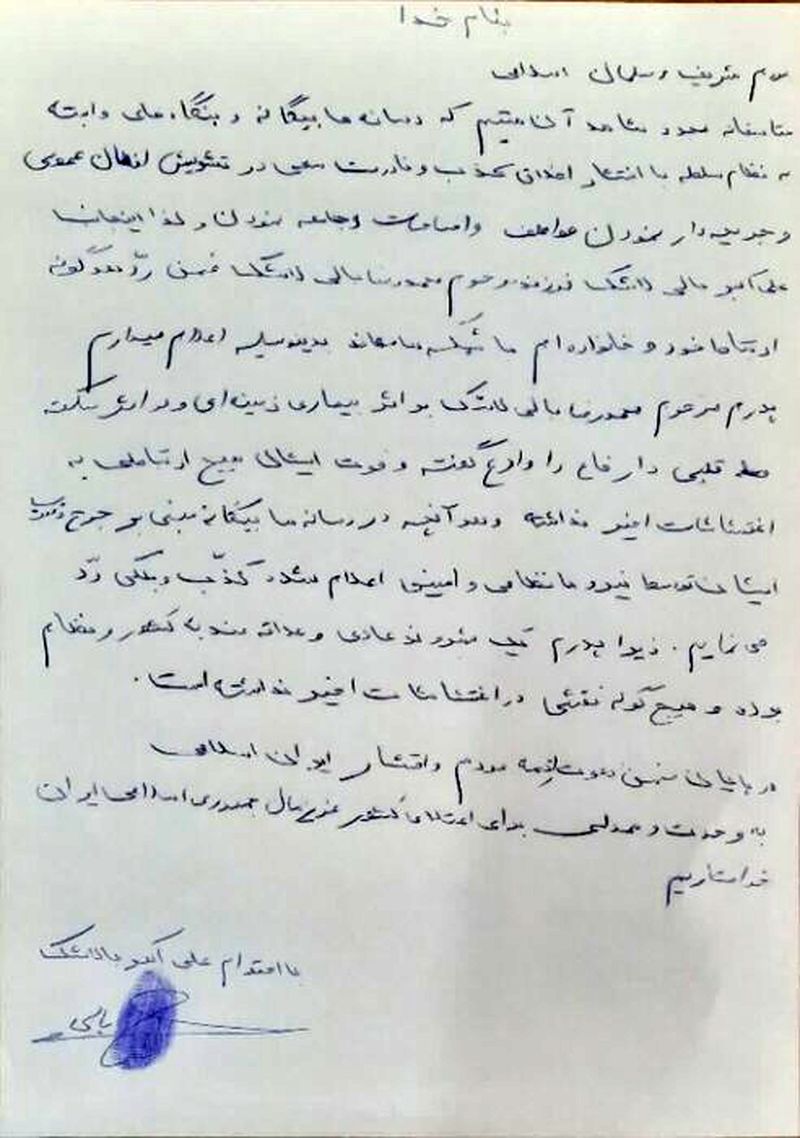 بنام خدا
مردم شریف و مسلمان اسلامی
متاسفانه مشاهد آن هستیم که رسانه ها بیگانه و بنگاه های وابسته
به نظام سلطه با انتشار اخبار کذب و نادرست سعی در تشویش اذهان عمومی
و جریحه دار نمودن عواطف و احساسات جامعه نمودن و لذا اینجانب
علی اکبر مالی لاشک فرزند مرحوم محمودرضا مالی لاشک ضمن رد هرگونه
ارتباط خود و خانواده ام با بدینوسیله اعلام میدارم
پدرم مرحوم محمودرضا مالی لاشک بر اثر بیماری زمینه ای و بر اثر سکته
قلبی دار فانی را وداع گفته و فوت ایشان هیچ ارتباطی به
اغتشاشات اخیر نداشته و هر آنچه در رسانه ها بیگانه مبنی بر جرح
ایشان توسط نیرو ها نظامی و امنیتی اعلام شده کذب و بکلی رد
می نمایم. زیرا پدرم یک شهروند عادی و علاقه مند به کشور و نظام
بوده و هیچ گونه نقشی در اغتشاشات اخیر نداشته است.
در پایان ضمن دعوت همه مردم و اقشار ایران اسلامی
به وحدت و همدلی برای اعتلای کشور عزیزمان جمهوری اسلامی ایران
خواستاریم
با احترام علی اکبر مالی لاشک